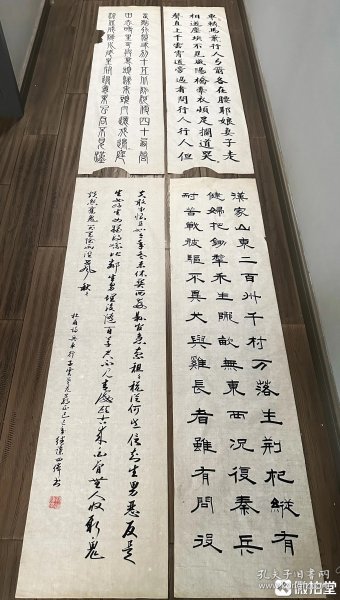 車轔馬蕭行人弓箭各在腰耶娘妻子走
相送塵埃不見咸陽橋牽衣頓足攔道哭
聲直上干雲霄道旁過者問行人行人但
云點行頻或從十五北防河便至四十西營
田去時里正與裹頭歸來頭白還戍邊
庭流血成海水武皇開邊意未已君不聞
漢家山東二百州千村万落生荆杞縱有
健婦把鋤犁禾生隴畝無東西況復秦兵
耐苦戰被驅不異犬與雞長者雖有問役
夫敢申恨且如今年冬未休關西卒縣官急索租租稅從何出信知生男惡反是
生女好生女猶得嫁比鄰生男埋沒隨百草君不見青海頭古來白骨無人收新鬼
煩冤舊鬼哭天陰雨濕聲啾
杜甫詩兵車行
孔夫子旧书网
微拍堂